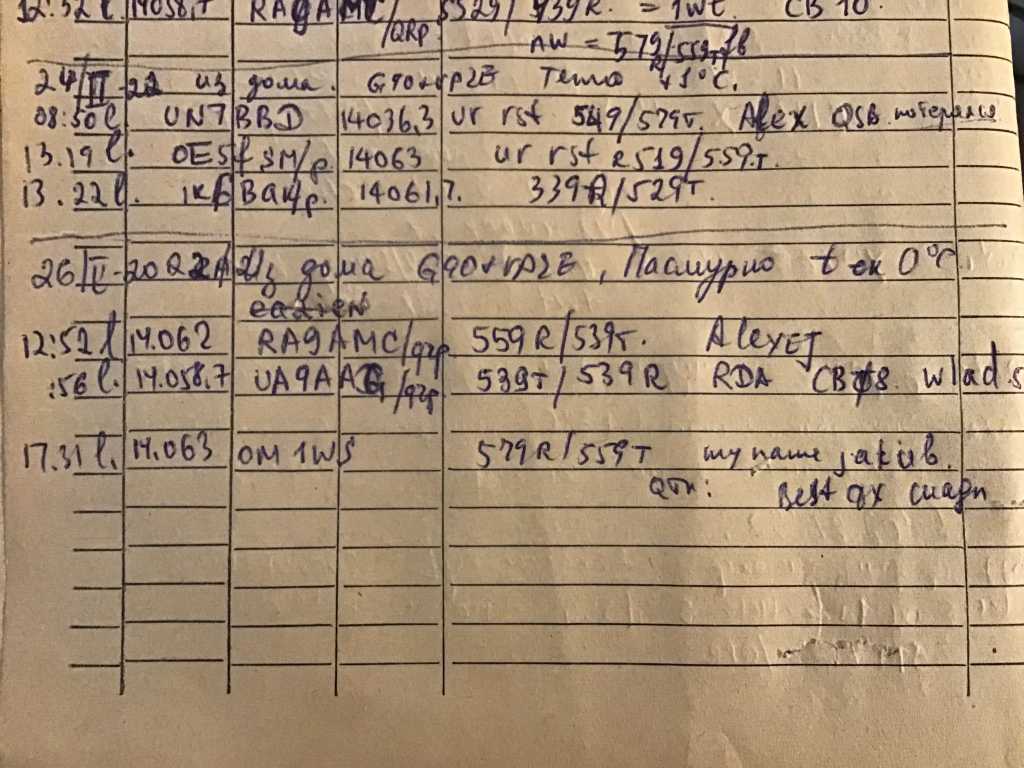 12:52 l 14058,7 RA9AMC/QRP 5529/939R. = 1wt. CB 10.
AW = 579/559T/
24/II-22 из дома. G90+ Тепло +3°C.
08:50 l UN7BBD 14036,3 ur rst 549/579T, Alex QSB потерялся
13.19 l. OE5FSM/p. 14063 ur rst R519/559.T.
13.22 l. IK6BAK/p. 14061,7. 339R/529T.
26/II-2022 Из дома G90+ , Пасмурно t ок 0°C
12:52 l 14.062 RA9AMC/qrp 559R/539T. Alexej
:56 l. 14.058,7 UA9AAG/qrp 539T/539R RDA CB 8. wlad.
17.31 l. 14.063 OM1WS 579R/559T my name jakub.
QTH: Best dx